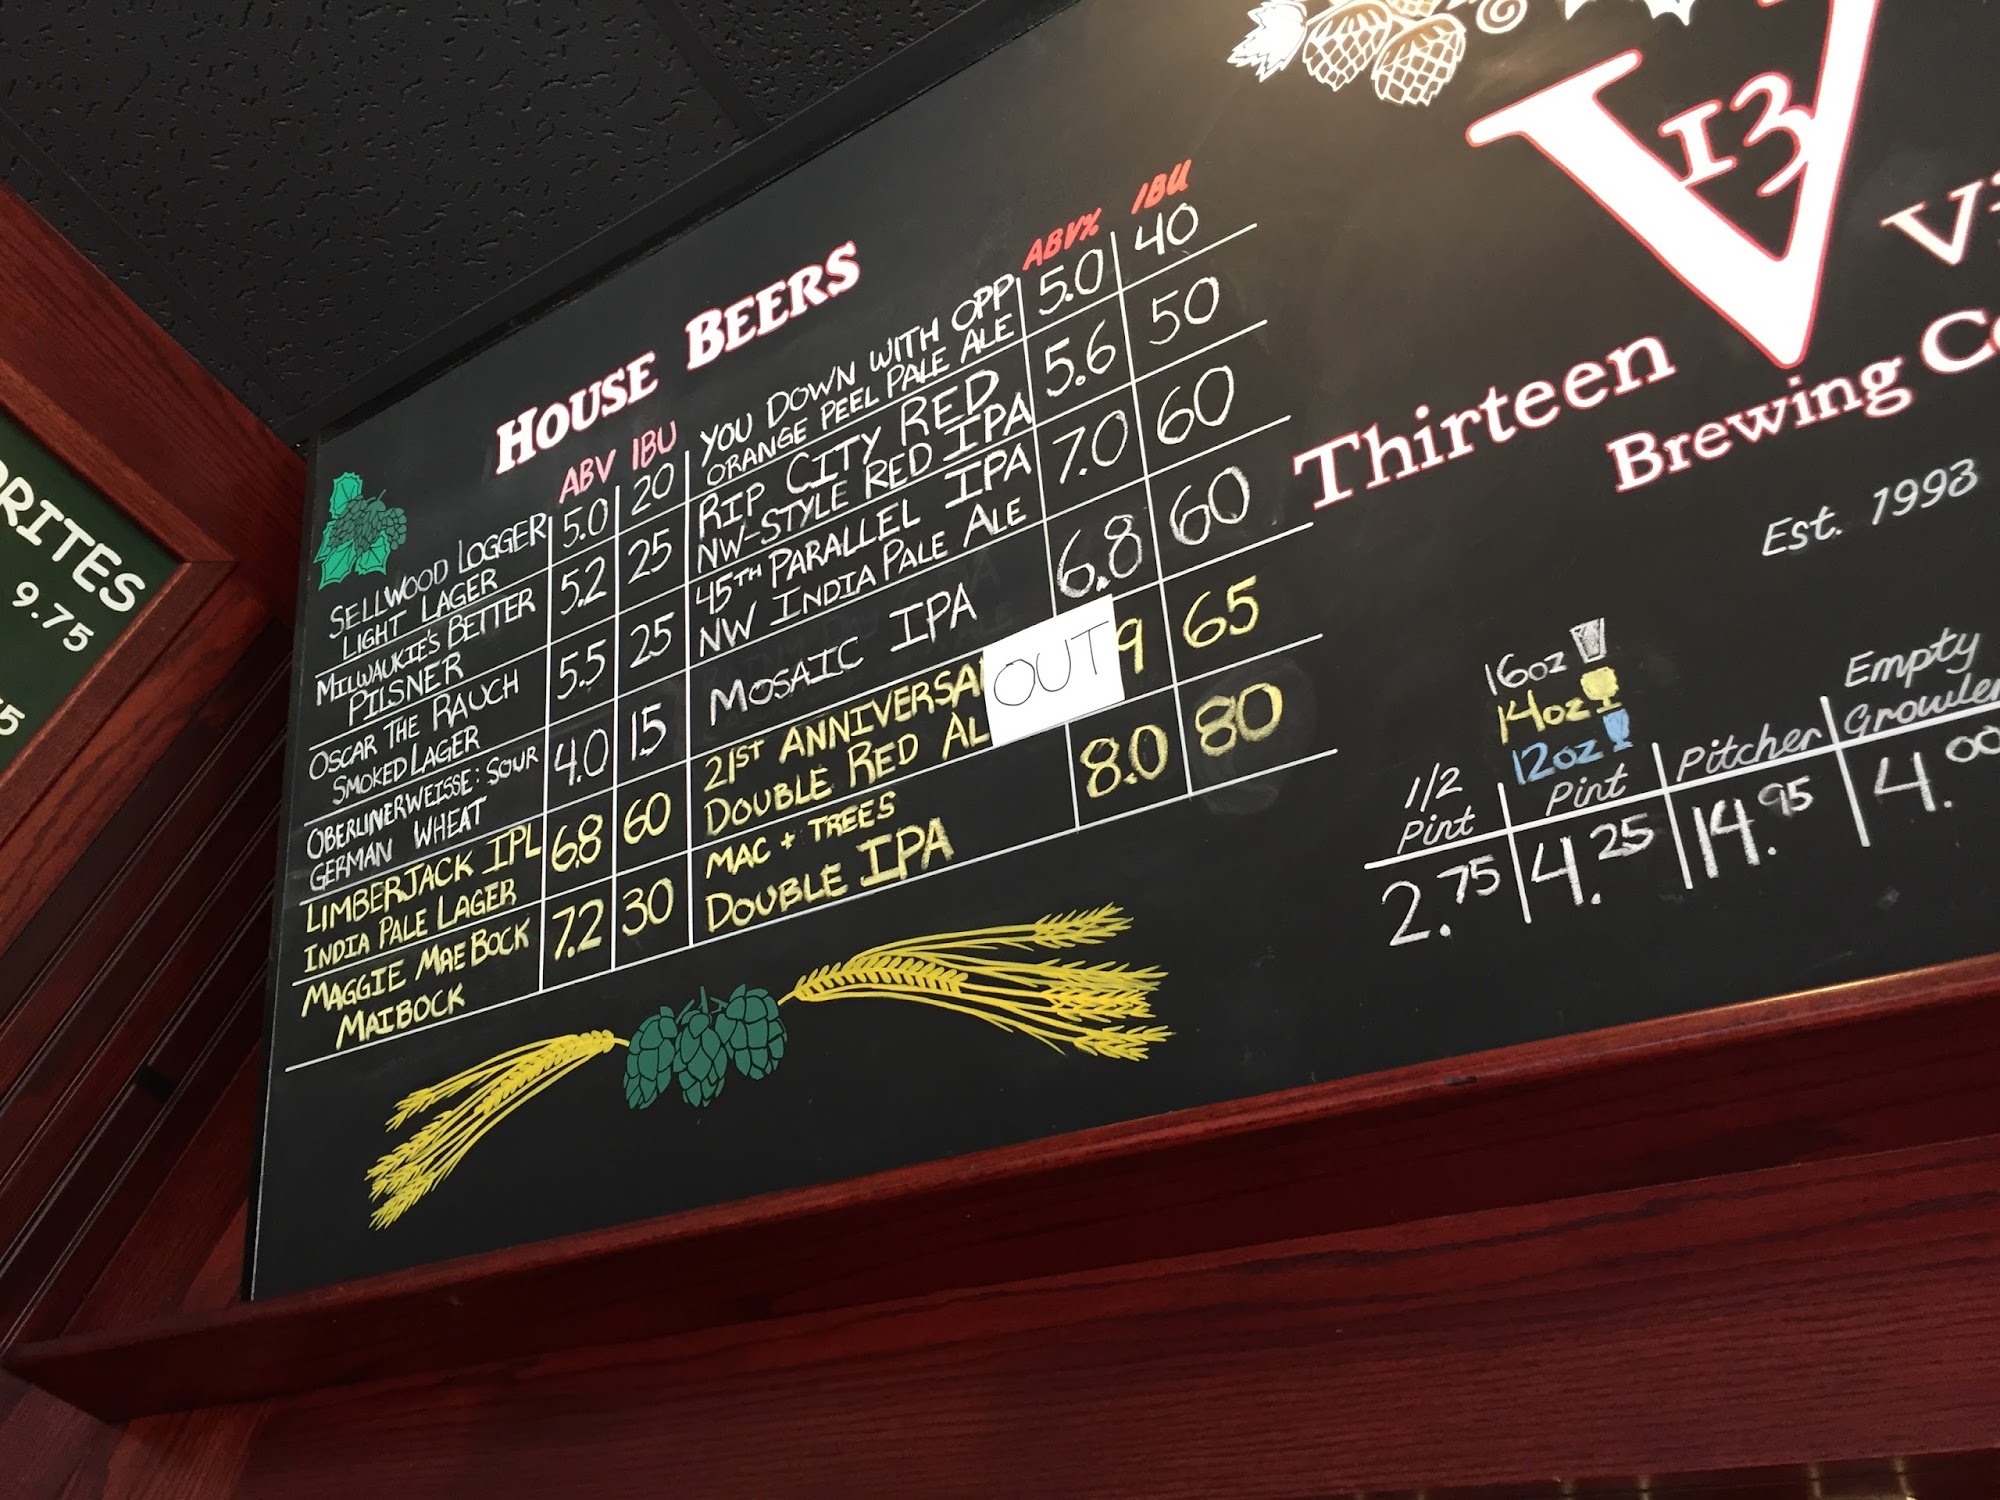 HOUSE BEERS
ABV IBU
SELLWOOD LOGGER 5.0 20
LIGHT LAGER
MILWAUKIE'S BETTER 5.2 25
PILSNER
OSCAR THE RAUCH 5.5 25
SMOKED LAGER
OBERLINERWEISSE: SOUR 4.0 15
GERMAN WHEAT
LIMBERJACK IPL 6.8 60
INDIA PALE LAGER
MAGGIE MAE BOCK 7.2 30
MAIBOCK
ABV% IBU
YOU DOWN WITH OPP 5.0 40
ORANGE PEEL PALE ALE
RIP CITY RED 5.6 50
NW-STYLE RED IPA
45TH PARALLEL IPA 7.0 60
NW INDIA PALE ALE
MOSAIC IPA 6.8 60
21ST ANNIVERSA 9 65
OUT
DOUBLE RED AL
MAC + TREES 8.0 80
DOUBLE IPA
V
13
Thirteen Vi
Brewing Co
Est. 1993
16oz
14oz
12oz
1/2 Pint Pint Pitcher Empty Growler
2.75 4.25 14.95 4.00
ORITES
9.75
5